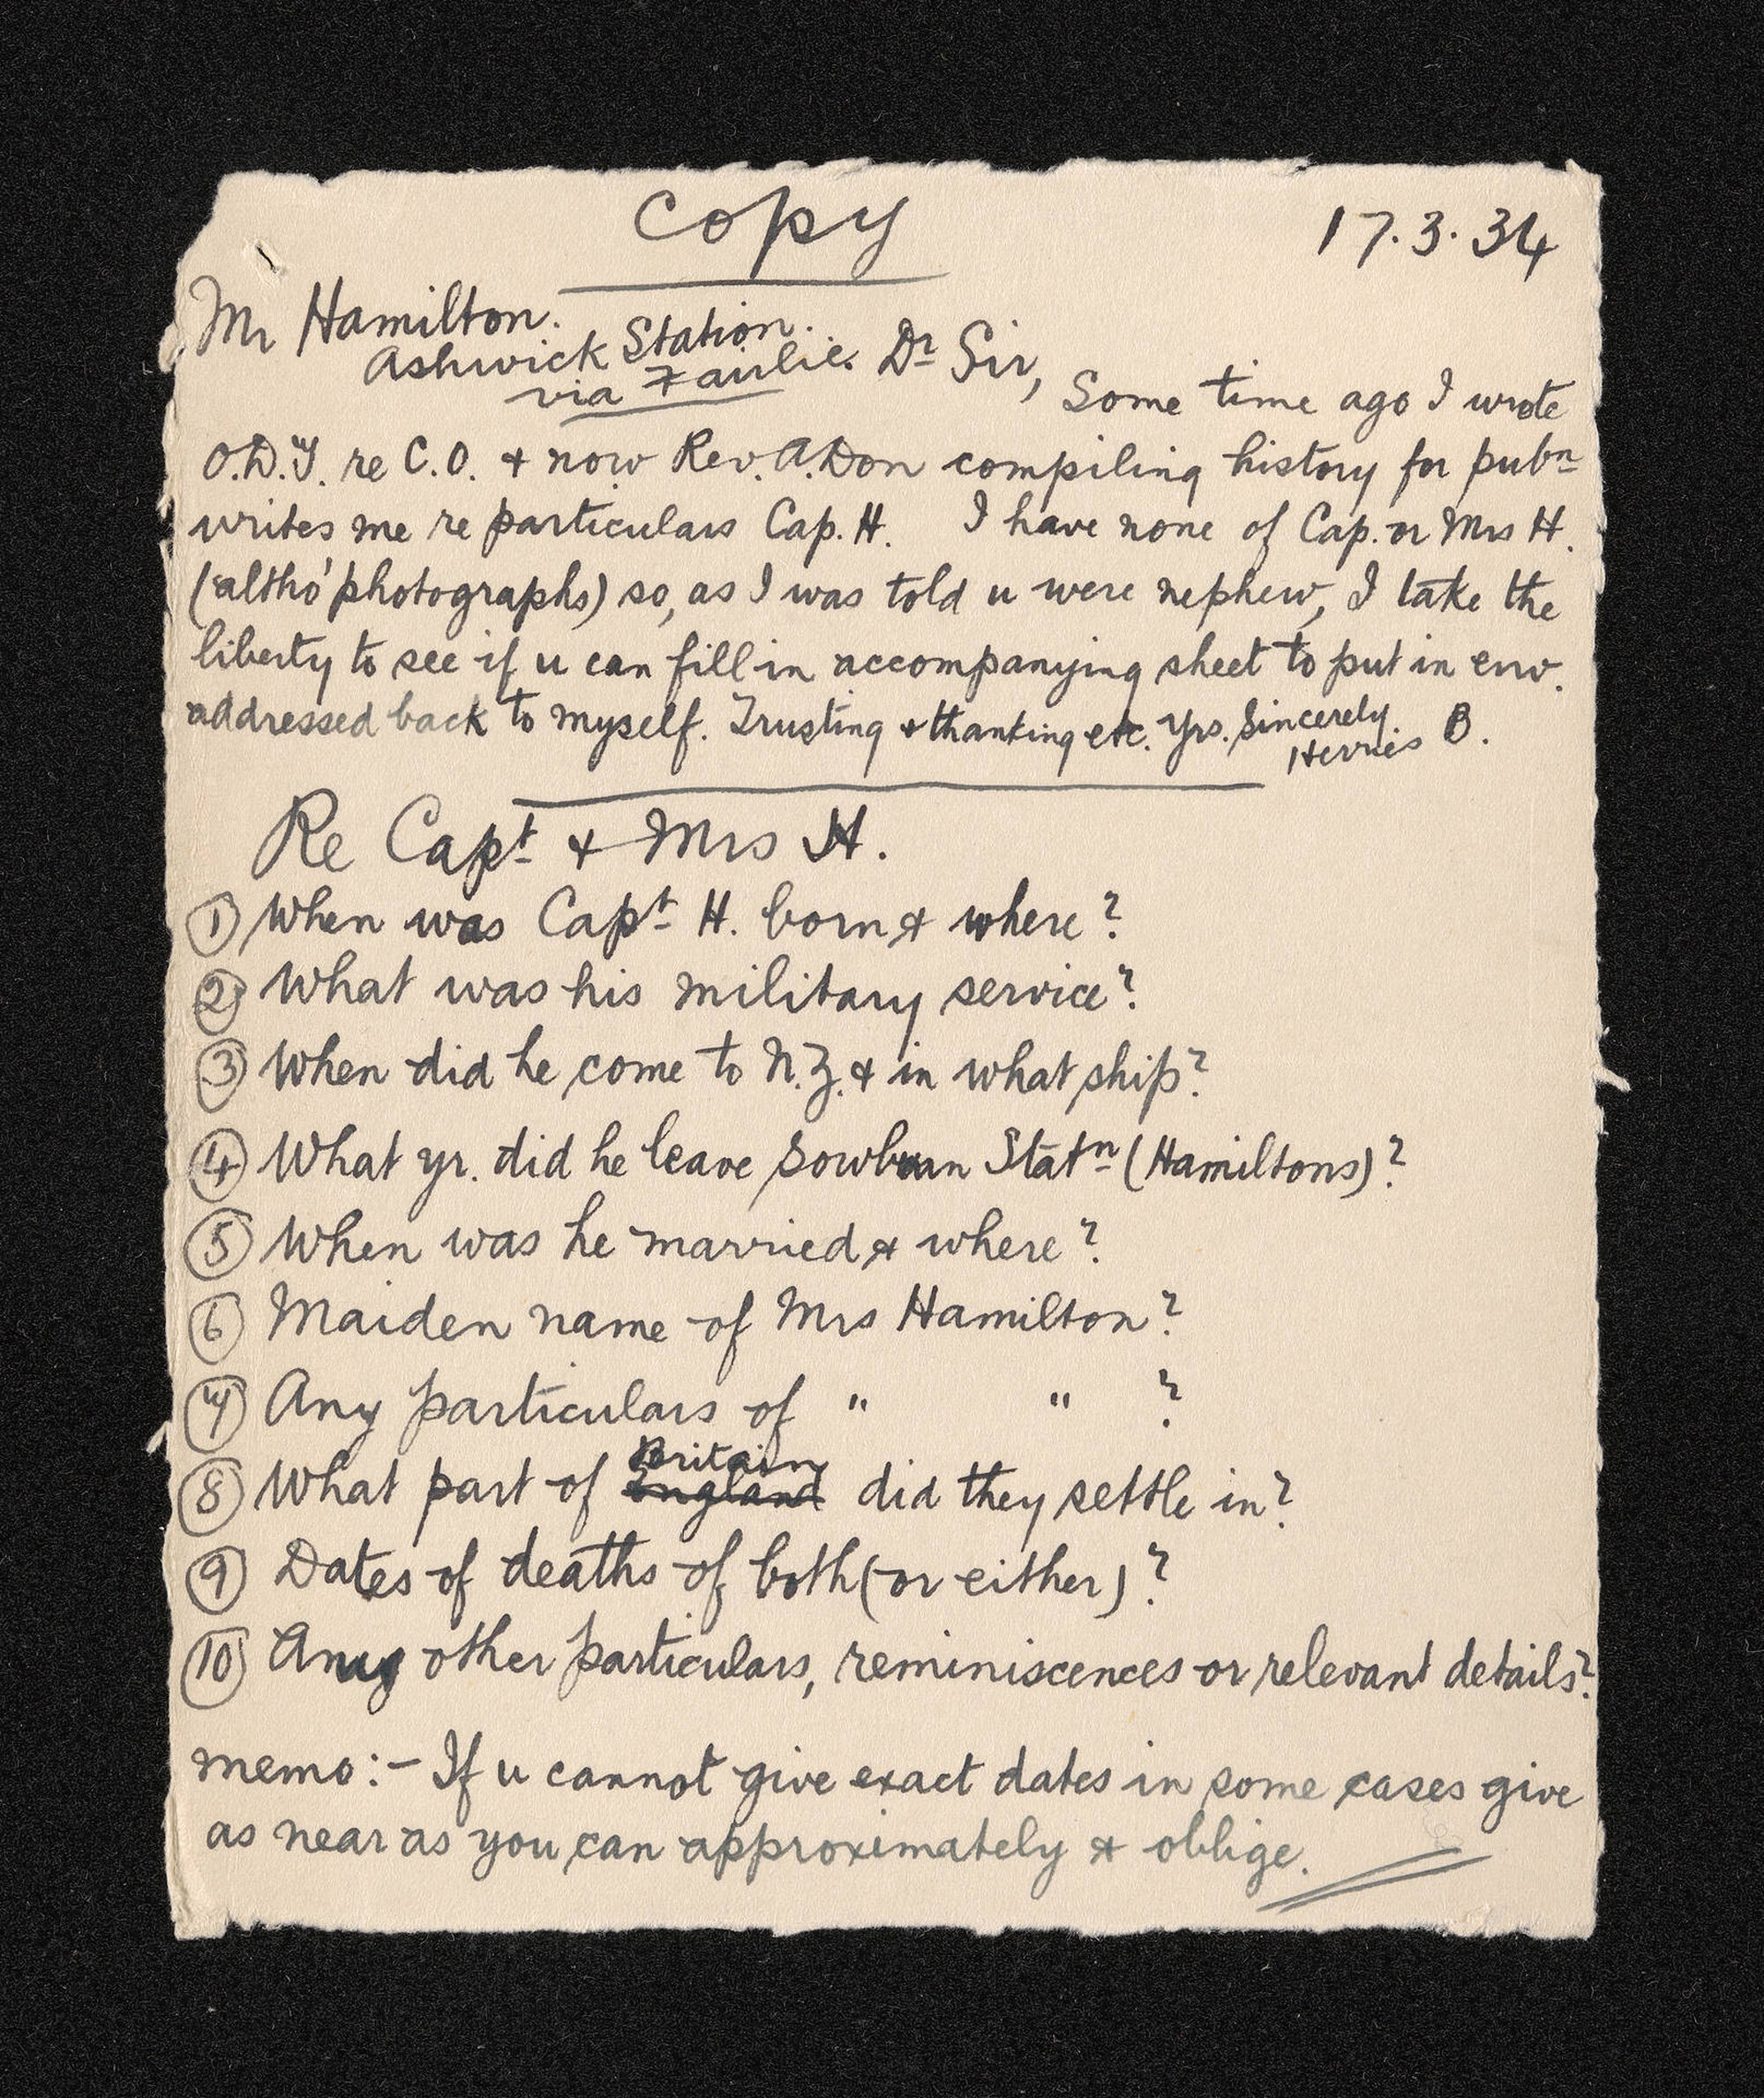 Copy
17.3.34
Mr Hamilton.
Ashwick Station.
via Fairlie. Dr Sir,
Some time ago I wrote
O.D.T. re C.O. & now Rev. A. Don compiling history for pubn
writes me re particulars Cap. H. I have none of Cap. or Mrs H.
(altho' photographs) so, as I was told u were nephew, I take the
liberty to see if u can fill in accompanying sheet to put in env.
addressed back to myself. Trusting & thanking etc. Yrs. Sincerely
Herries B.
Re Capt & Mrs H.
① When was Capt H. born & where?
② What was his military service?
③ When did he come to N.Z. & in what ship?
④ What yr. did he leave Sowburn Statn (Hamiltons)?
⑤ When was he married & where?
⑥ Maiden name of Mrs Hamilton?
⑦ Any particulars of " " ?
Britain
⑧ What part of England did they settle in?
⑨ Dates of deaths of both (or either)?
⑩ Any other particulars, reminiscences or relevant details?
memo:- If u cannot give exact dates in some cases give
as near as you can approximately & oblige.